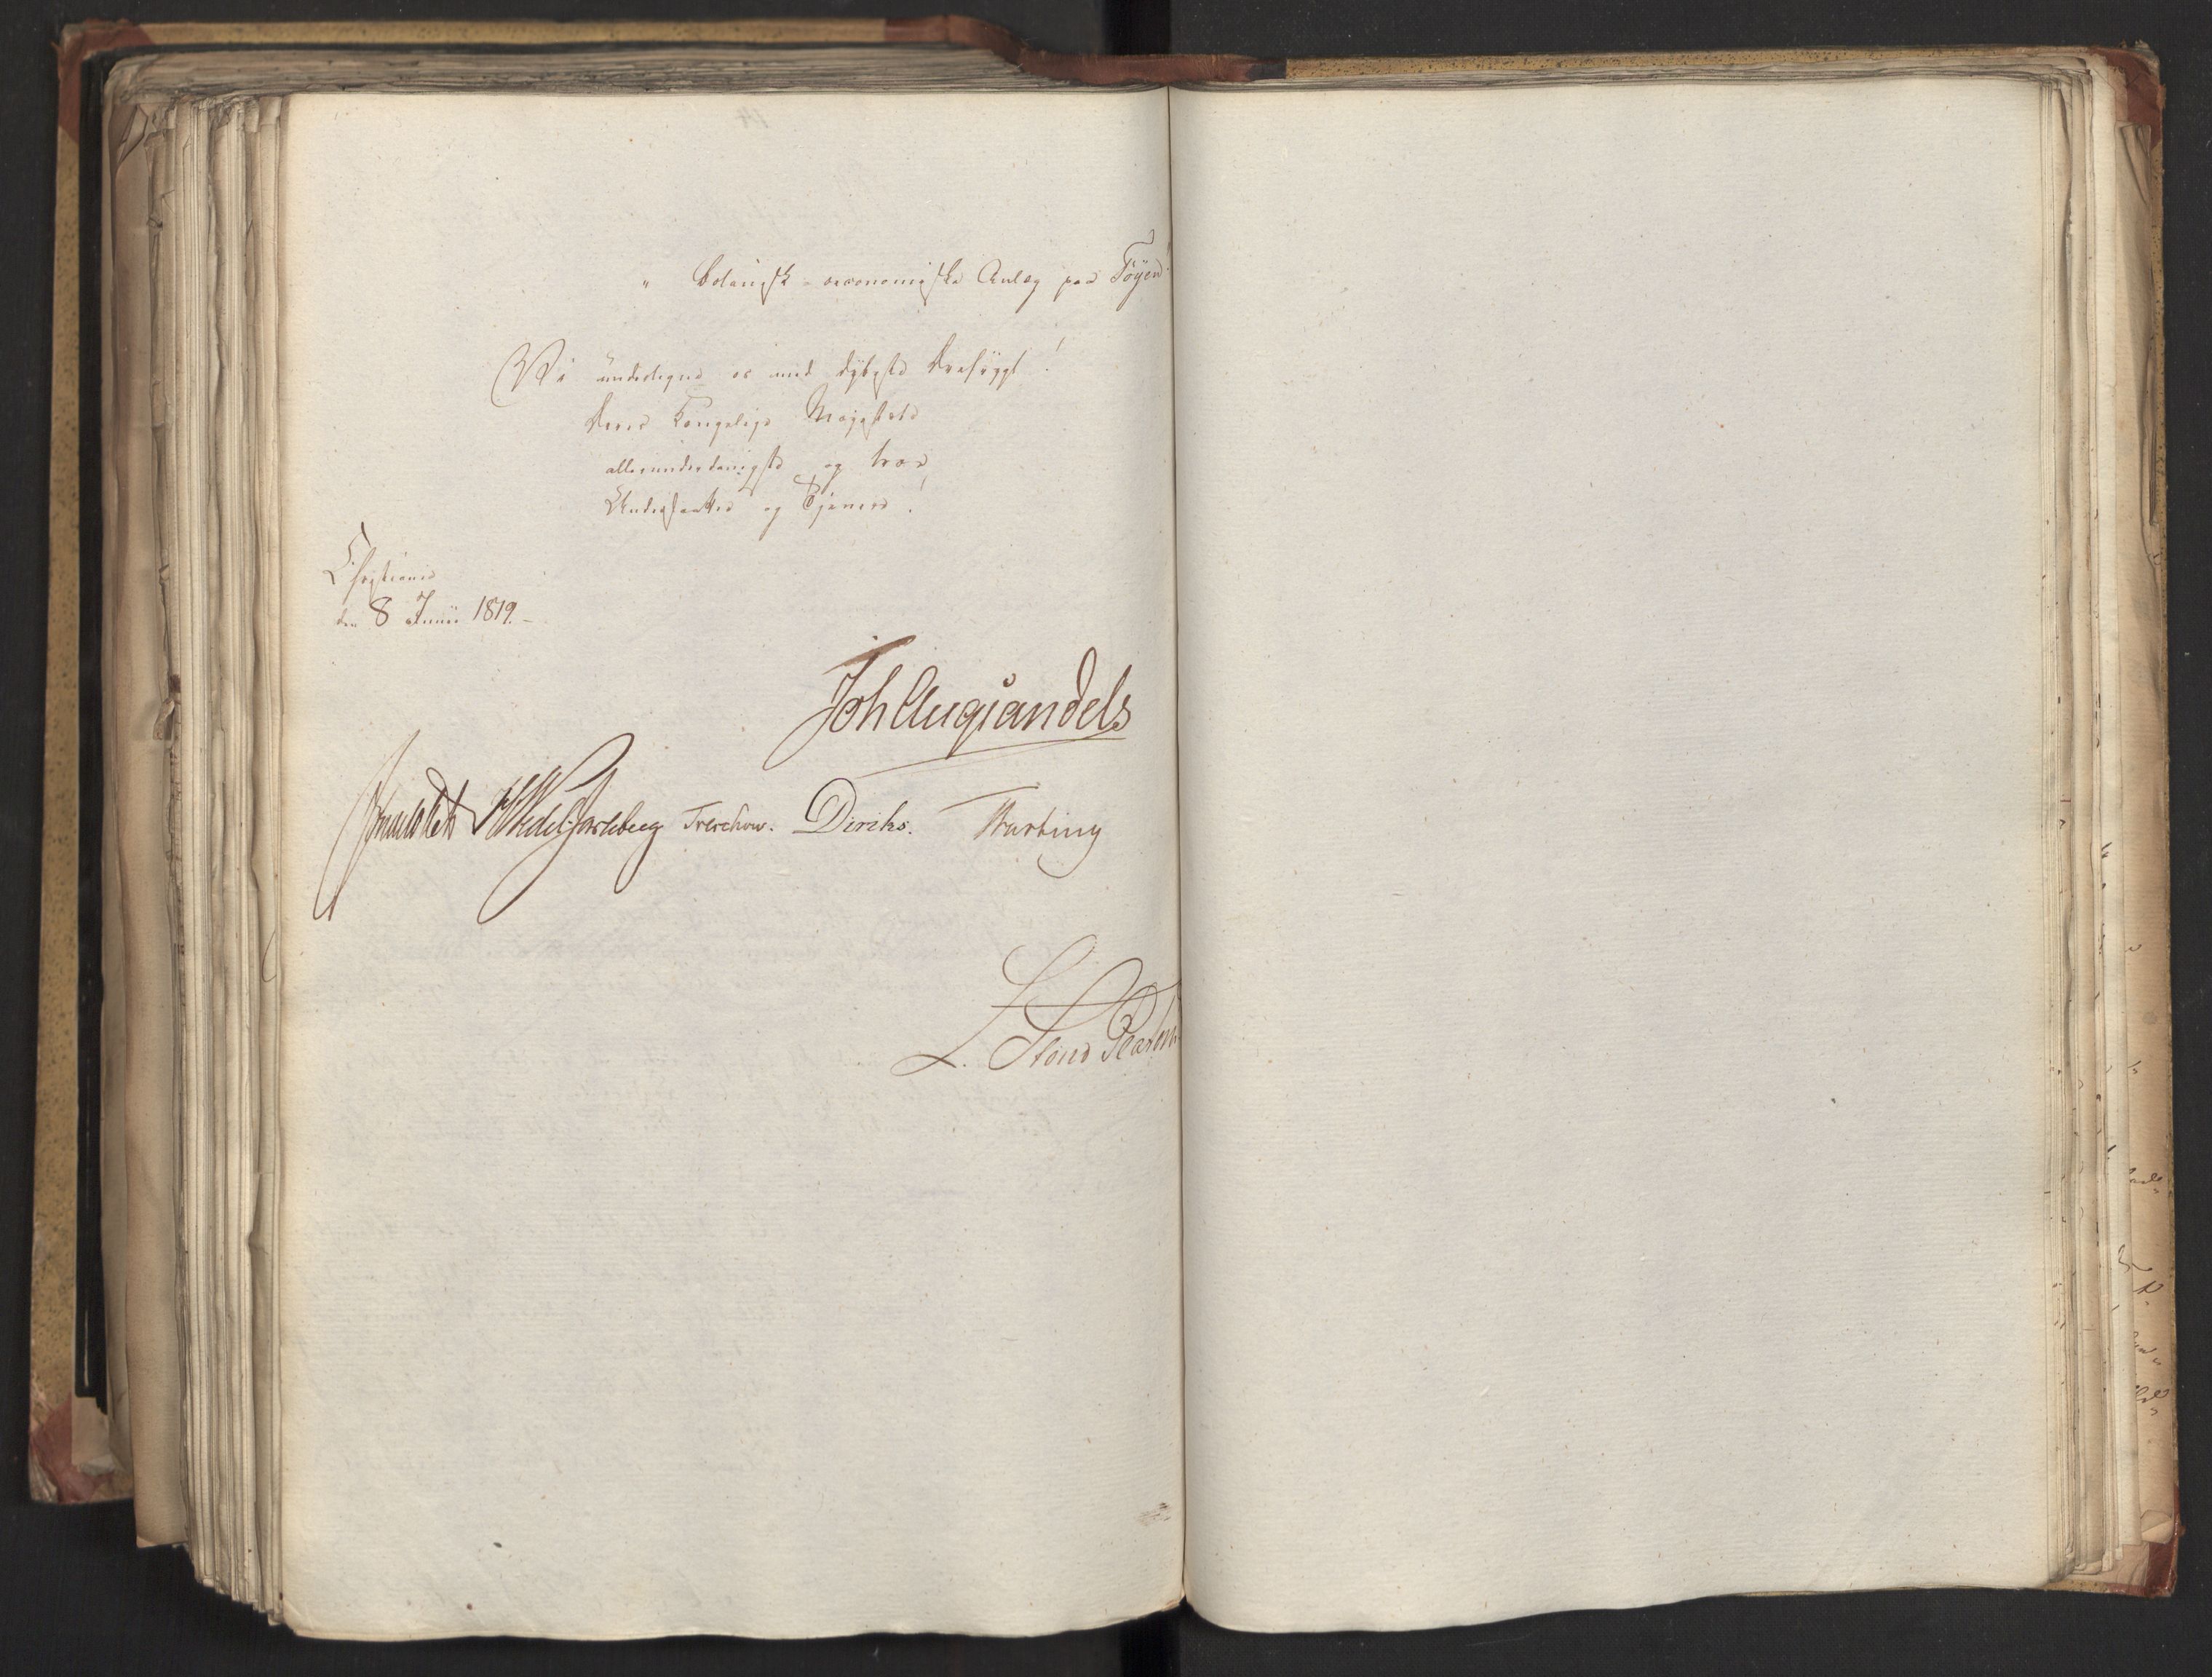 " botanisk-oeconomiske Anlæg paa Töyen"
Vi undertegne os med dybeste Ærefrygt!
Deres Kongelige Majestæts
allerunderdanigste og troe
Undersaatter og Tjenere!
Christiania
den 8 Junii 1819.-
Joh Aug Sandels
HWedel Jarlsberg Treschow. Diriks. Wasting
L. Stoud Platou